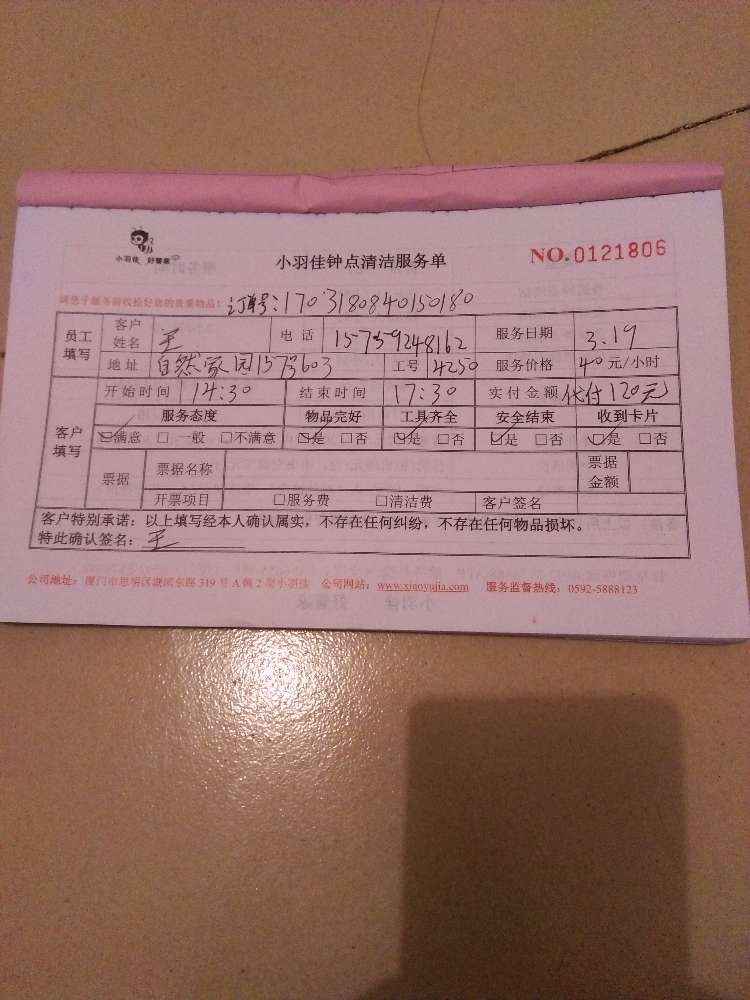 小羽佳 好管家
小羽佳钟点清洁服务单
NO.0121806
请您于服务前收捡好您的贵重物品! 订单号:1703180840150180
员工填写 客户姓名 王 电话 15759248162 服务日期 3.19
地址 自然家园157号603 工号 4250 服务价格 40元/小时
客户填写 开始时间 14:30 结束时间 17:30 实付金额 代付120元
服务态度 物品完好 工具齐全 安全结束 收到卡片
☑满意 □一般 □不满意 ☑是 □否 ☑是 □否 ☑是 □否 ☑是 □否
票据 票据名称 票据金额
开票项目 □服务费 □清洁费 客户签名
客户特别承诺:以上填写经本人确认属实,不存在任何纠纷,不存在任何物品损坏。
特此确认签名:王
公司地址:厦门市思明区湖滨东路319号A侧2梁小羽佳 公司网站:www.xiaoyujia.com 服务监督热线:0592-5888123